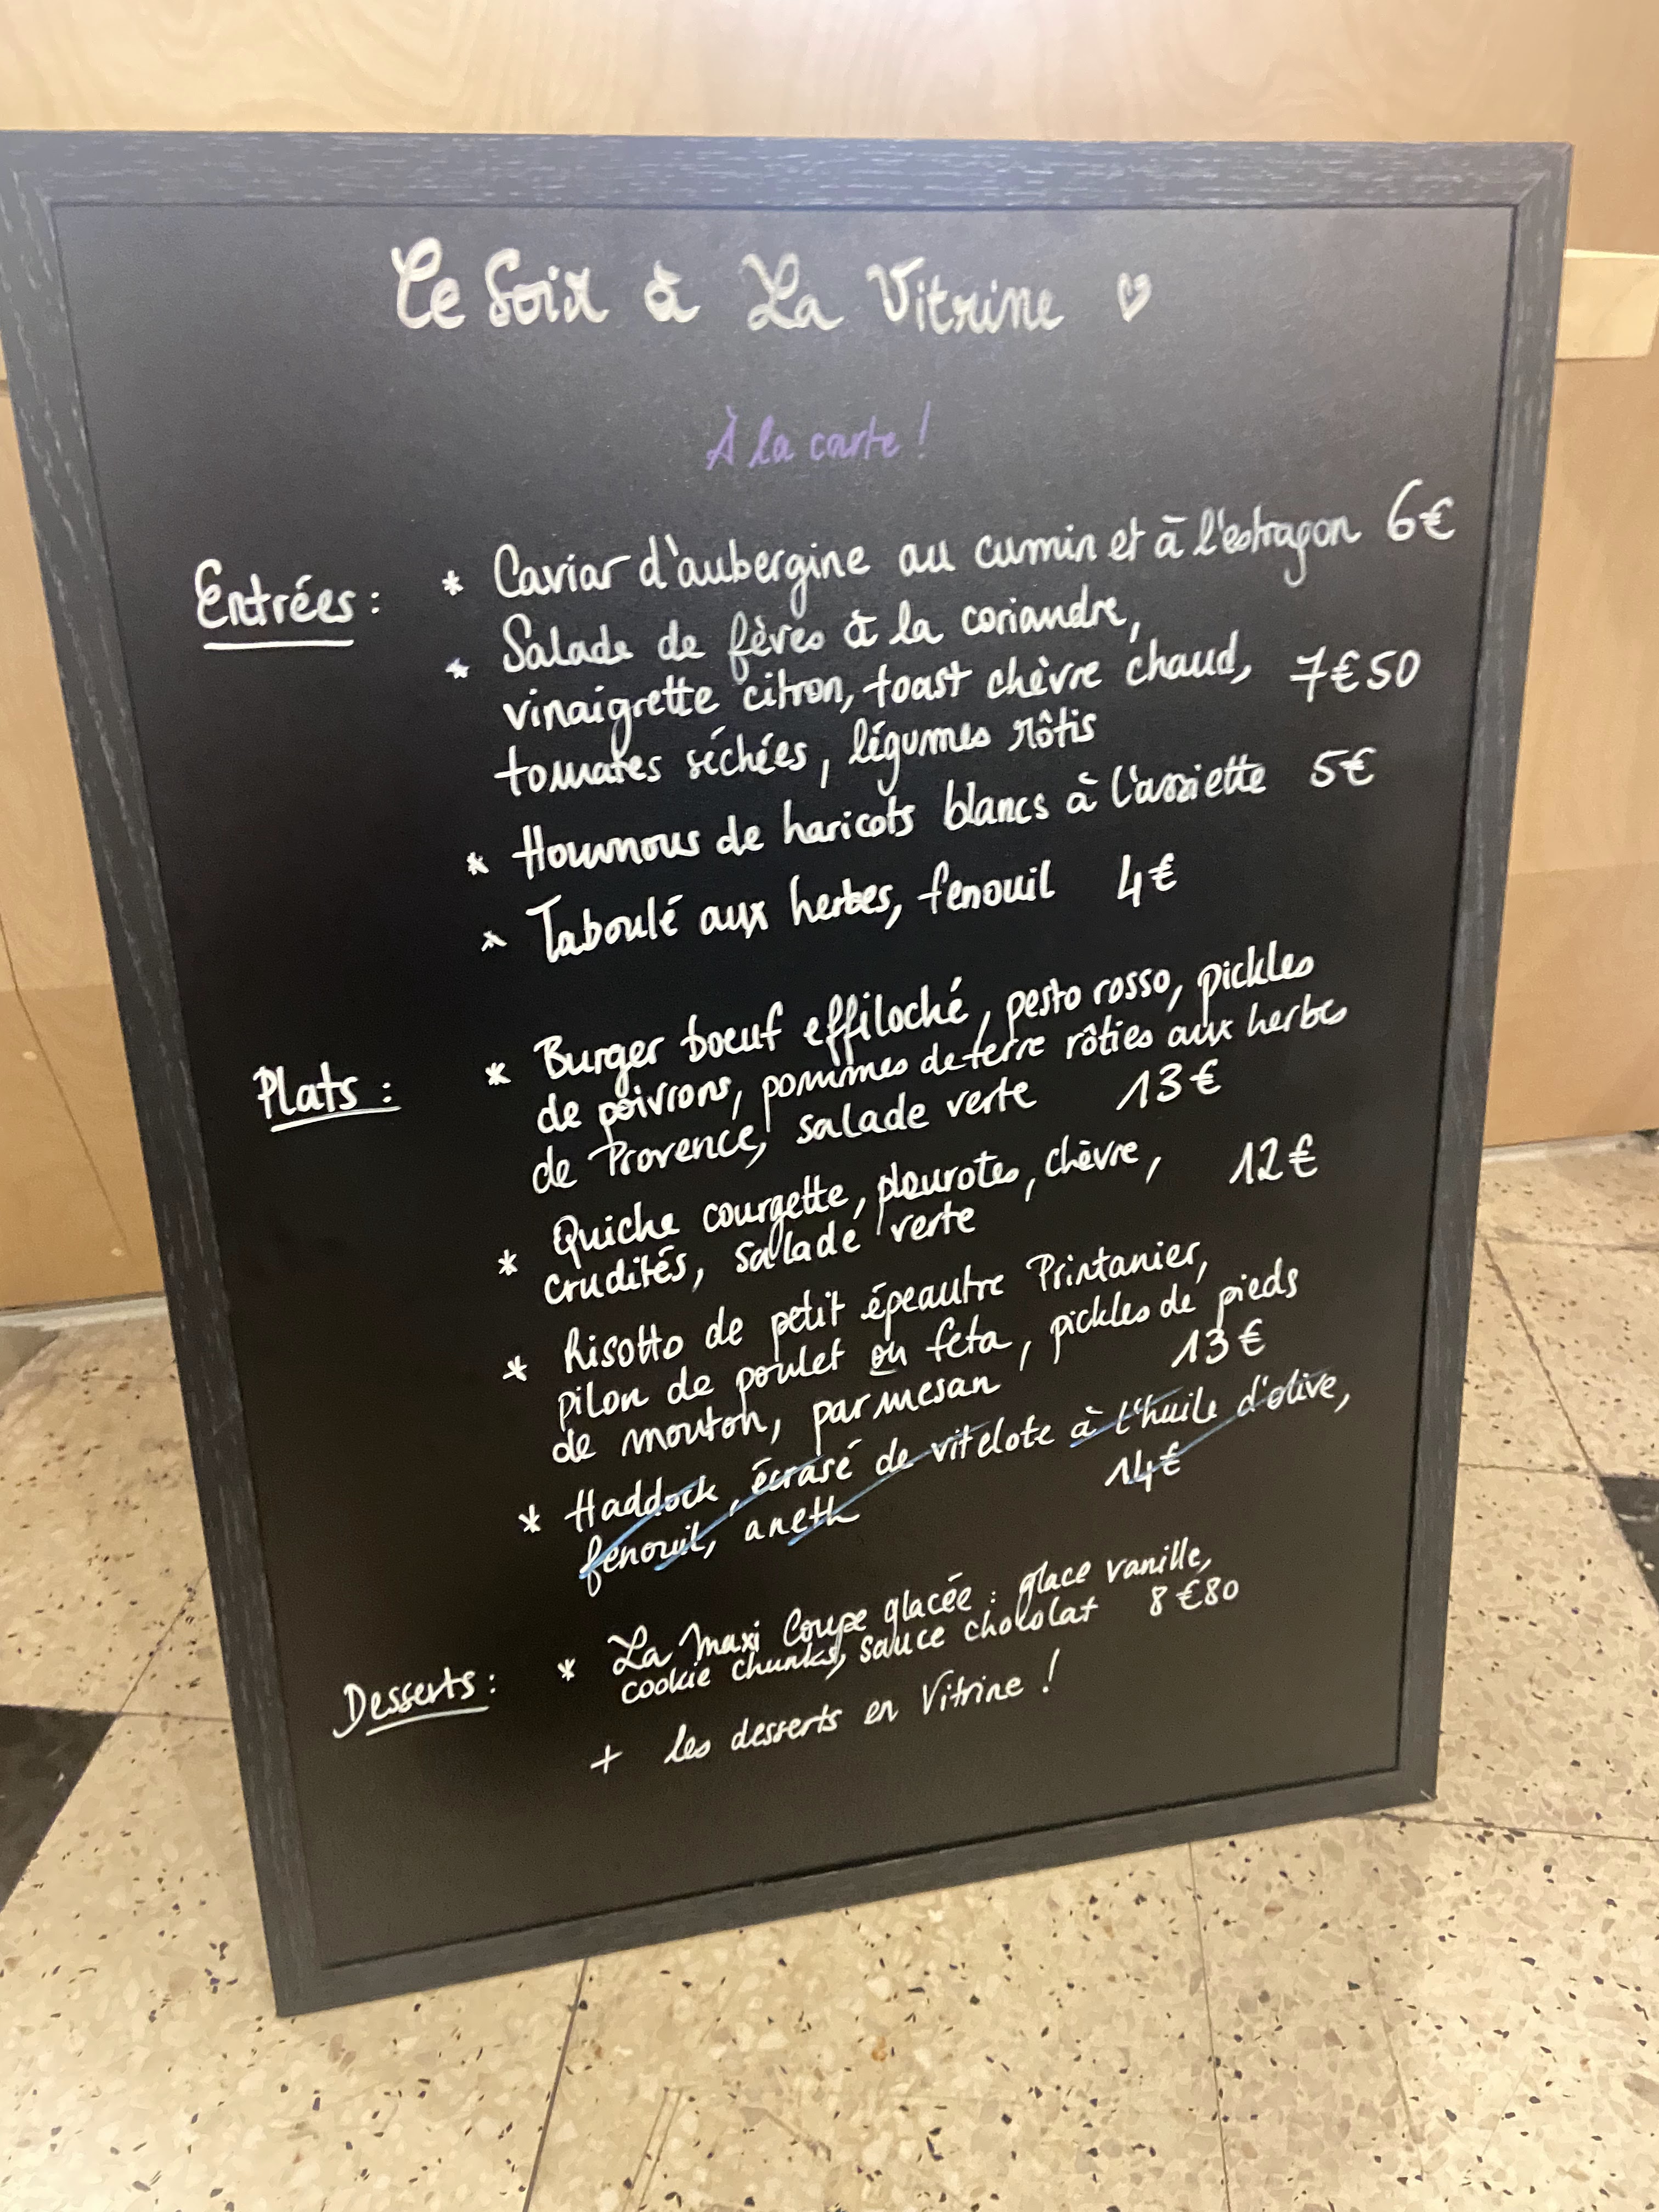 Ce Soir à La Vitrine ♡
À la carte !
Entrées : * Caviar d'aubergine au cumin et à l'estragon 6€
* Salade de fèves à la coriandre,
vinaigrette citron, toast chèvre chaud, 7€50
tomates séchées, légumes rôtis
* Houmous de haricots blancs à l'assiette 5€
* Taboulé aux herbes, fenouil 4€
Plats : * Burger boeuf effiloché, pesto rosso, pickles
de poivrons, pommes de terre rôties aux herbes
de Provence, salade verte 13€
* Quiche courgette, pleurotes, chèvre, 12€
crudités, salade verte
* Risotto de petit épeautre Printanier,
pilon de poulet ou feta, pickles de pieds
de mouton, parmesan 13€
* Haddock, écrasé de vitelote à l'huile d'olive,
fenouil, aneth 14€
Desserts : * La Maxi Coupe glacée : glace vanille,
cookie chunks, sauce chocolat 8€80
+ les desserts en Vitrine !